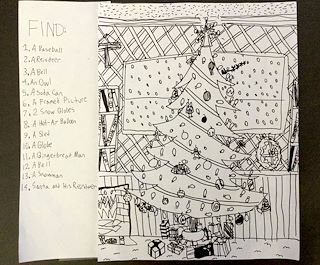 FIND:
1. A Baseball
2. A Reindeer
3. A Bell
4. An Owl
5. A Soda Can
6. A Framed Picture
7. 2 Snow Globes
8. A Hot-Air Balloon
9. A Sled
10. A Globe
11. A Gingerbread Man
12. A Bell
13. A Snowman
14. Santa and His Reindeer